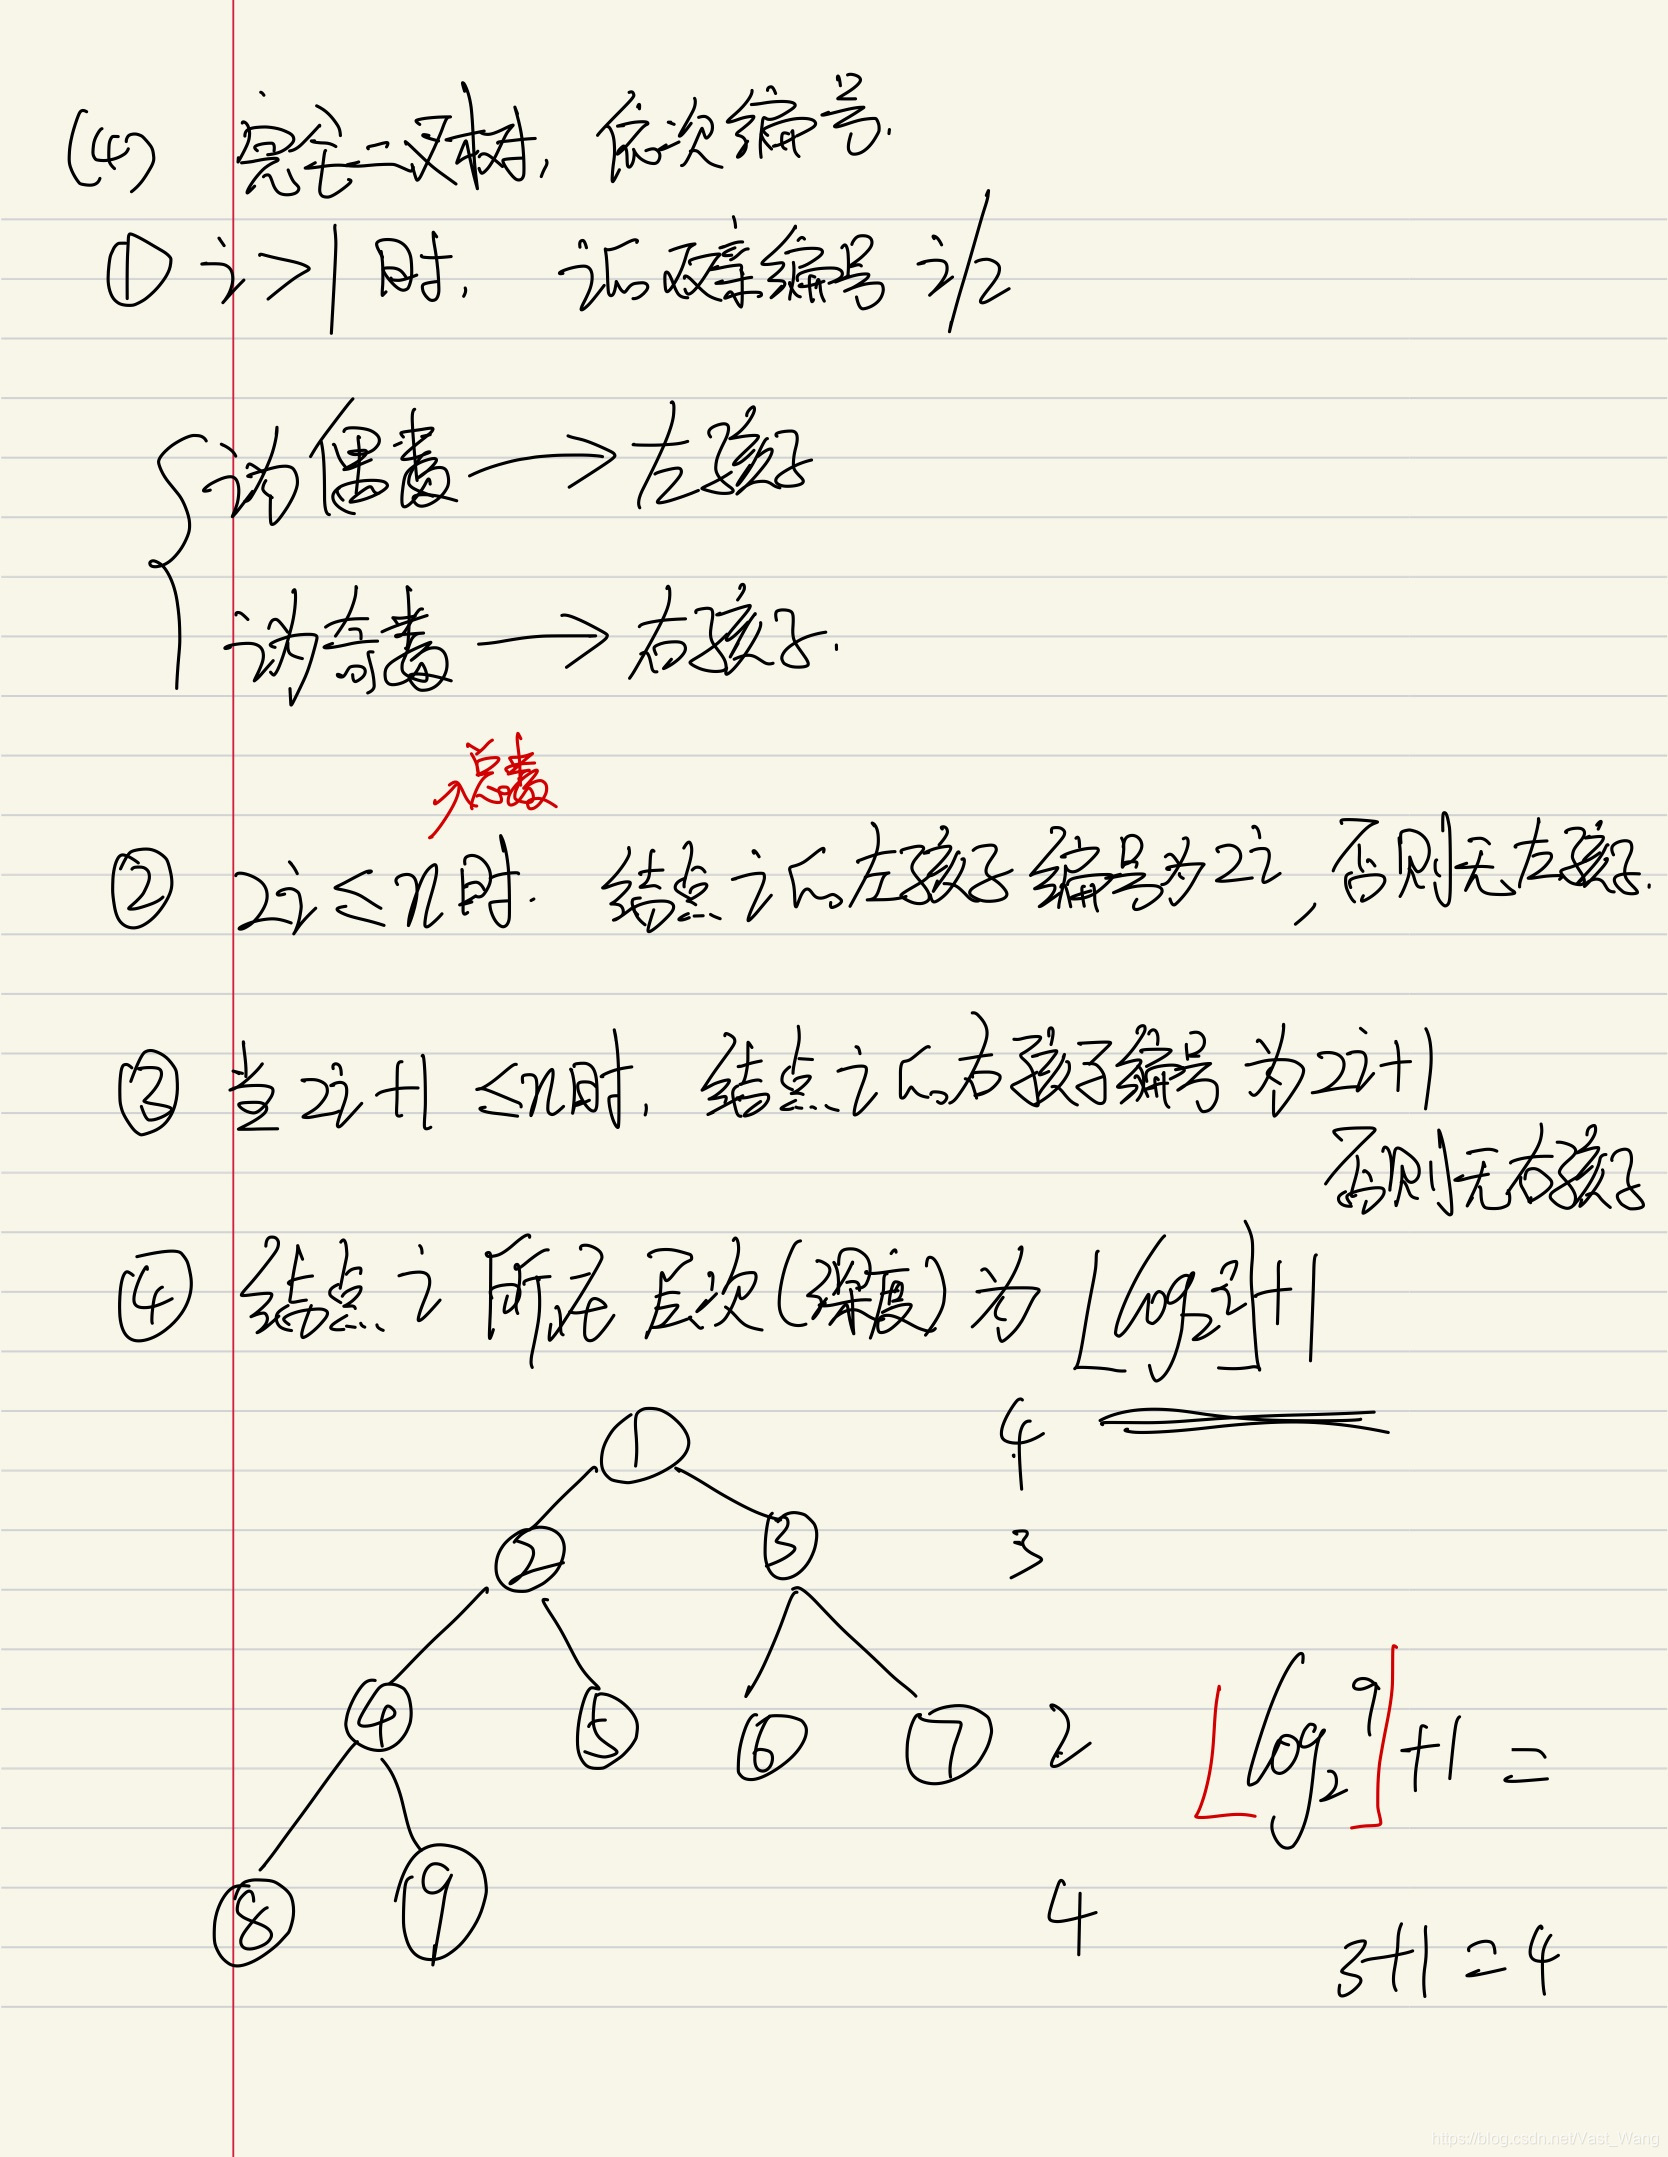 (4) 完全二叉树,依次编号.
① i>1时, i的双亲编号 i/2
i为偶数→左孩子
i为奇数→右孩子.
总数
② 2i≤n时. 结点i的左孩子编号为2i,否则无左孩子.
③ 当2i+1≤n时, 结点i的右孩子编号为2i+1
否则无右孩子
④ 结点i所在层次(深度)为⌊log₂i⌋+1
1 4
2 3 3
4 5 6 7 2 ⌊log₂9⌋+1=
8 9 4
3+1=4
https://blog.csdn.net/Vast_Wang